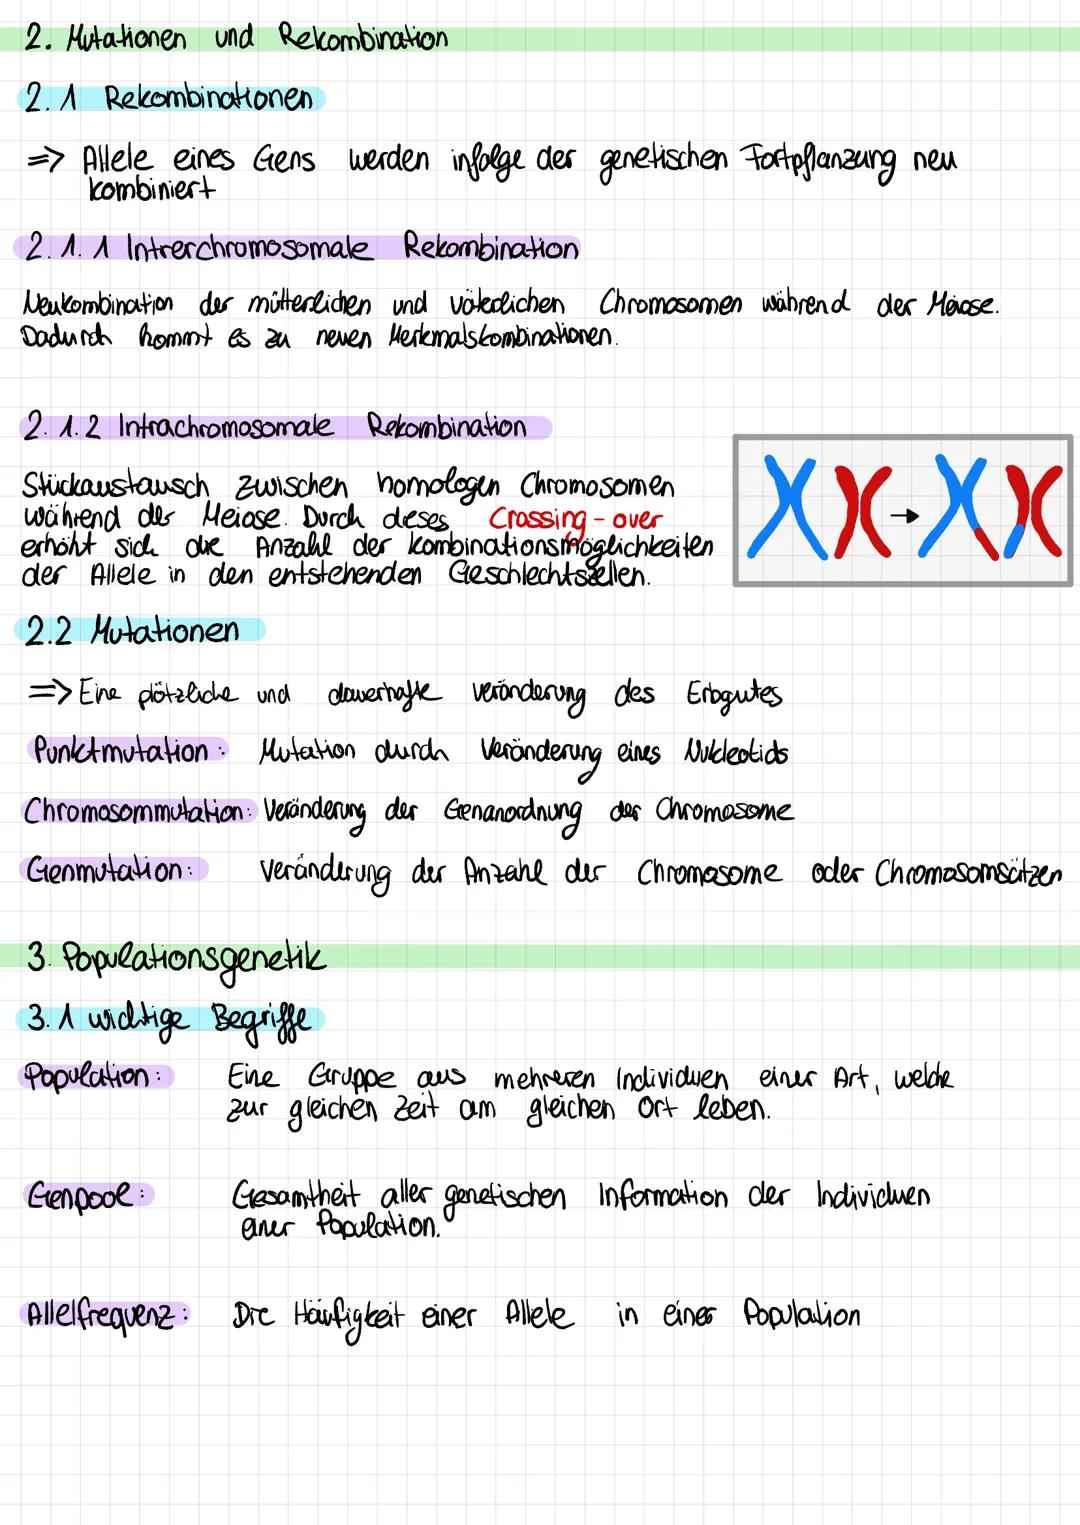 2. Mutationen und Rekombination
2.1 Rekombinationen
=> Allele eines Gens werden infolge der genetischen Fortpflanzung neu
kombiniert
2.1.1 Intrerchromosomale Rekombination
Neukombination der mütterlichen und väterlichen Chromosomen während der Meiose.
Dadurch kommt es zu neuen Merkmalskombinationen.
2.1.2 Intrachromosomale Rekombination
Stückaustausch zwischen homologen Chromosomen
während der Meiose. Durch dieses Crossing-over
erhöht sich die Anzahl der Kombinationsmöglichkeiten
der Allele in den entstehenden Geschlechtszellen.
2.2 Mutationen
=> Eine plötzliche und dauerhafte Veränderung des Erbgutes
Punktmutation: Mutation durch Veränderung eines Nukleotids
Chromosommutation: Veränderung der Genanordnung der Chromosome
Genmutation: Veränderung der Anzahl der Chromosome oder Chromosomsätzen
3. Populationsgenetik
3.1 wichtige Begriffe
Population: Eine Gruppe aus mehreren Individuen einer Art, welche
zur gleichen Zeit am gleichen Ort leben.
Genpool: Gesamtheit aller genetischen Information der Individuen
einer Population.
Allelfrequenz: Die Häufigkeit einer Allele in einer Population